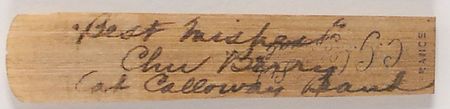 Best Wishes
Chu Berry
Cab Calloway Band
FRANCE